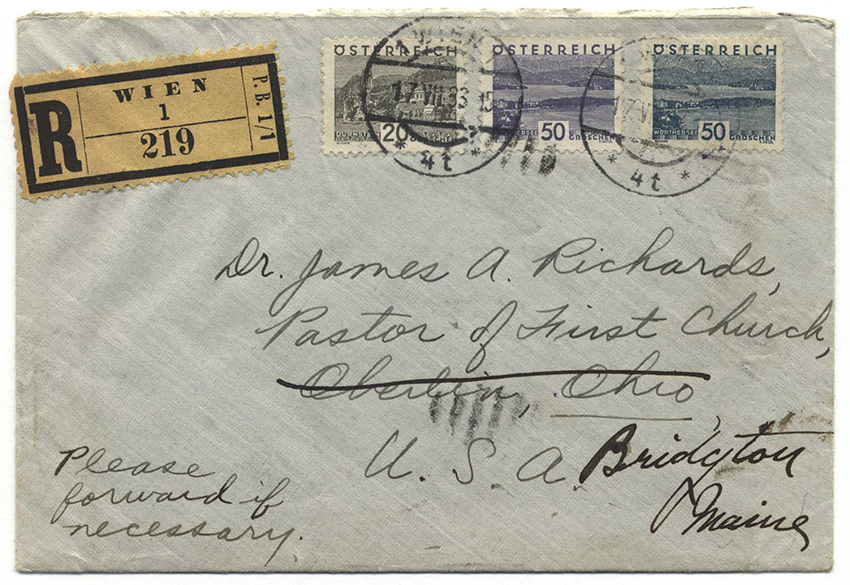 R
WIEN
1
219
P.B. 1/1
ÖSTERREICH
20
GROSCHEN
ÖSTERREICH
50
WÖRTHERSEE
GROSCHEN
ÖSTERREICH
50
WÖRTHERSEE
GROSCHEN
WIEN
17.VII.33 15
* 4t *
17.V
* 4t *
Dr. James A. Richards,
Pastor of First Church,
Oberlin, Ohio,
U. S. A. Bridgton
Maine
Please
forward if
necessary.